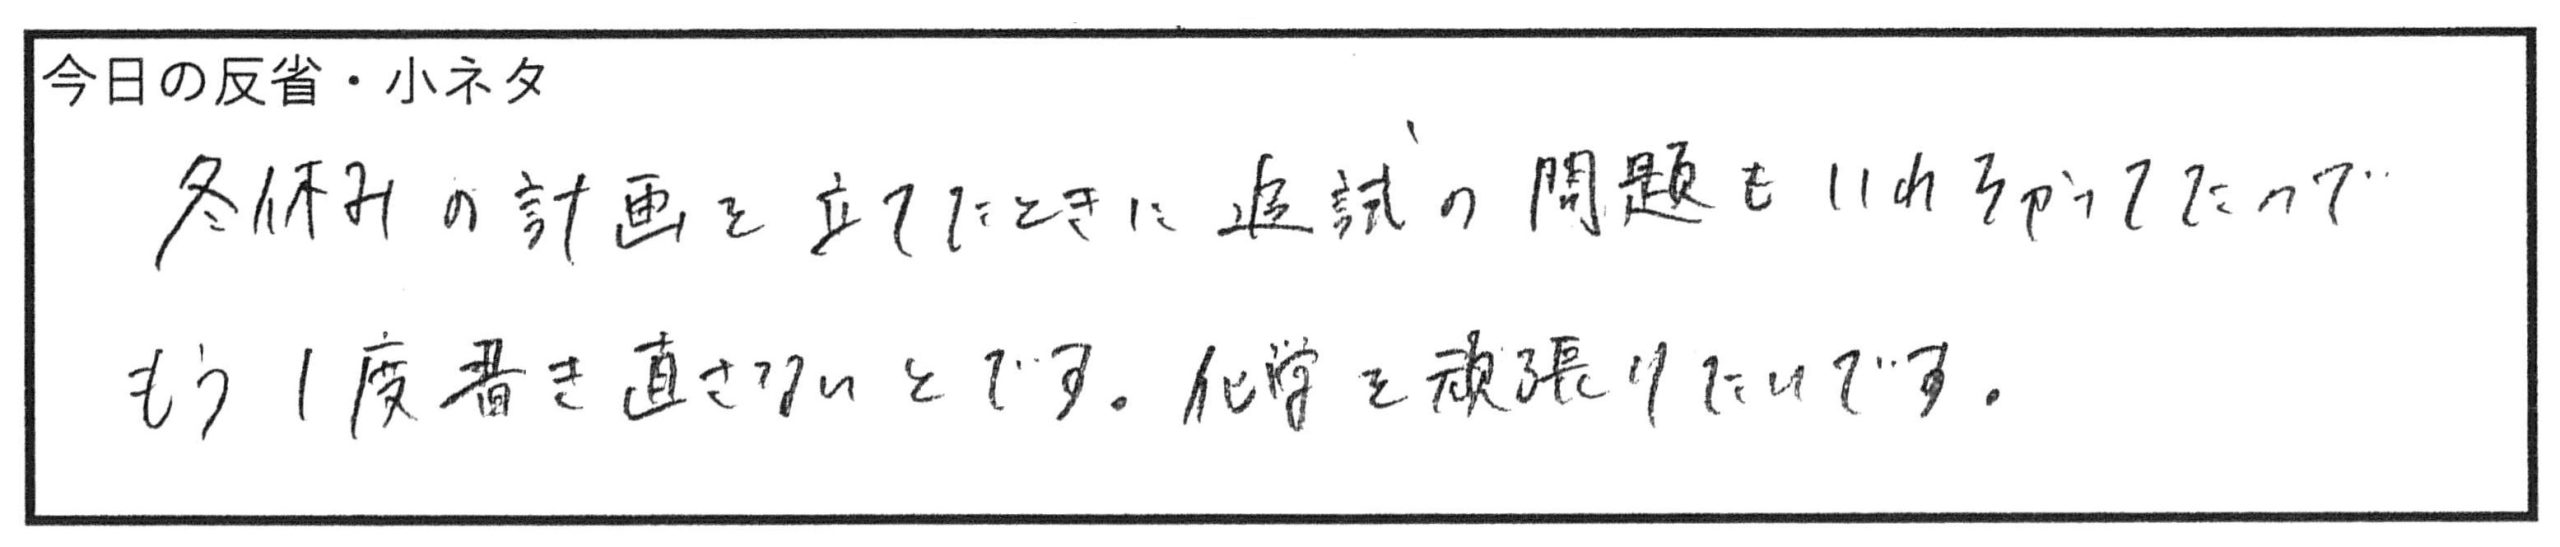 今日の反省・小ネタ
冬休みの計画を立てたときに追試の問題もいれそがってたので
もう1度書き直さないとです。化学を頑張りたいです。